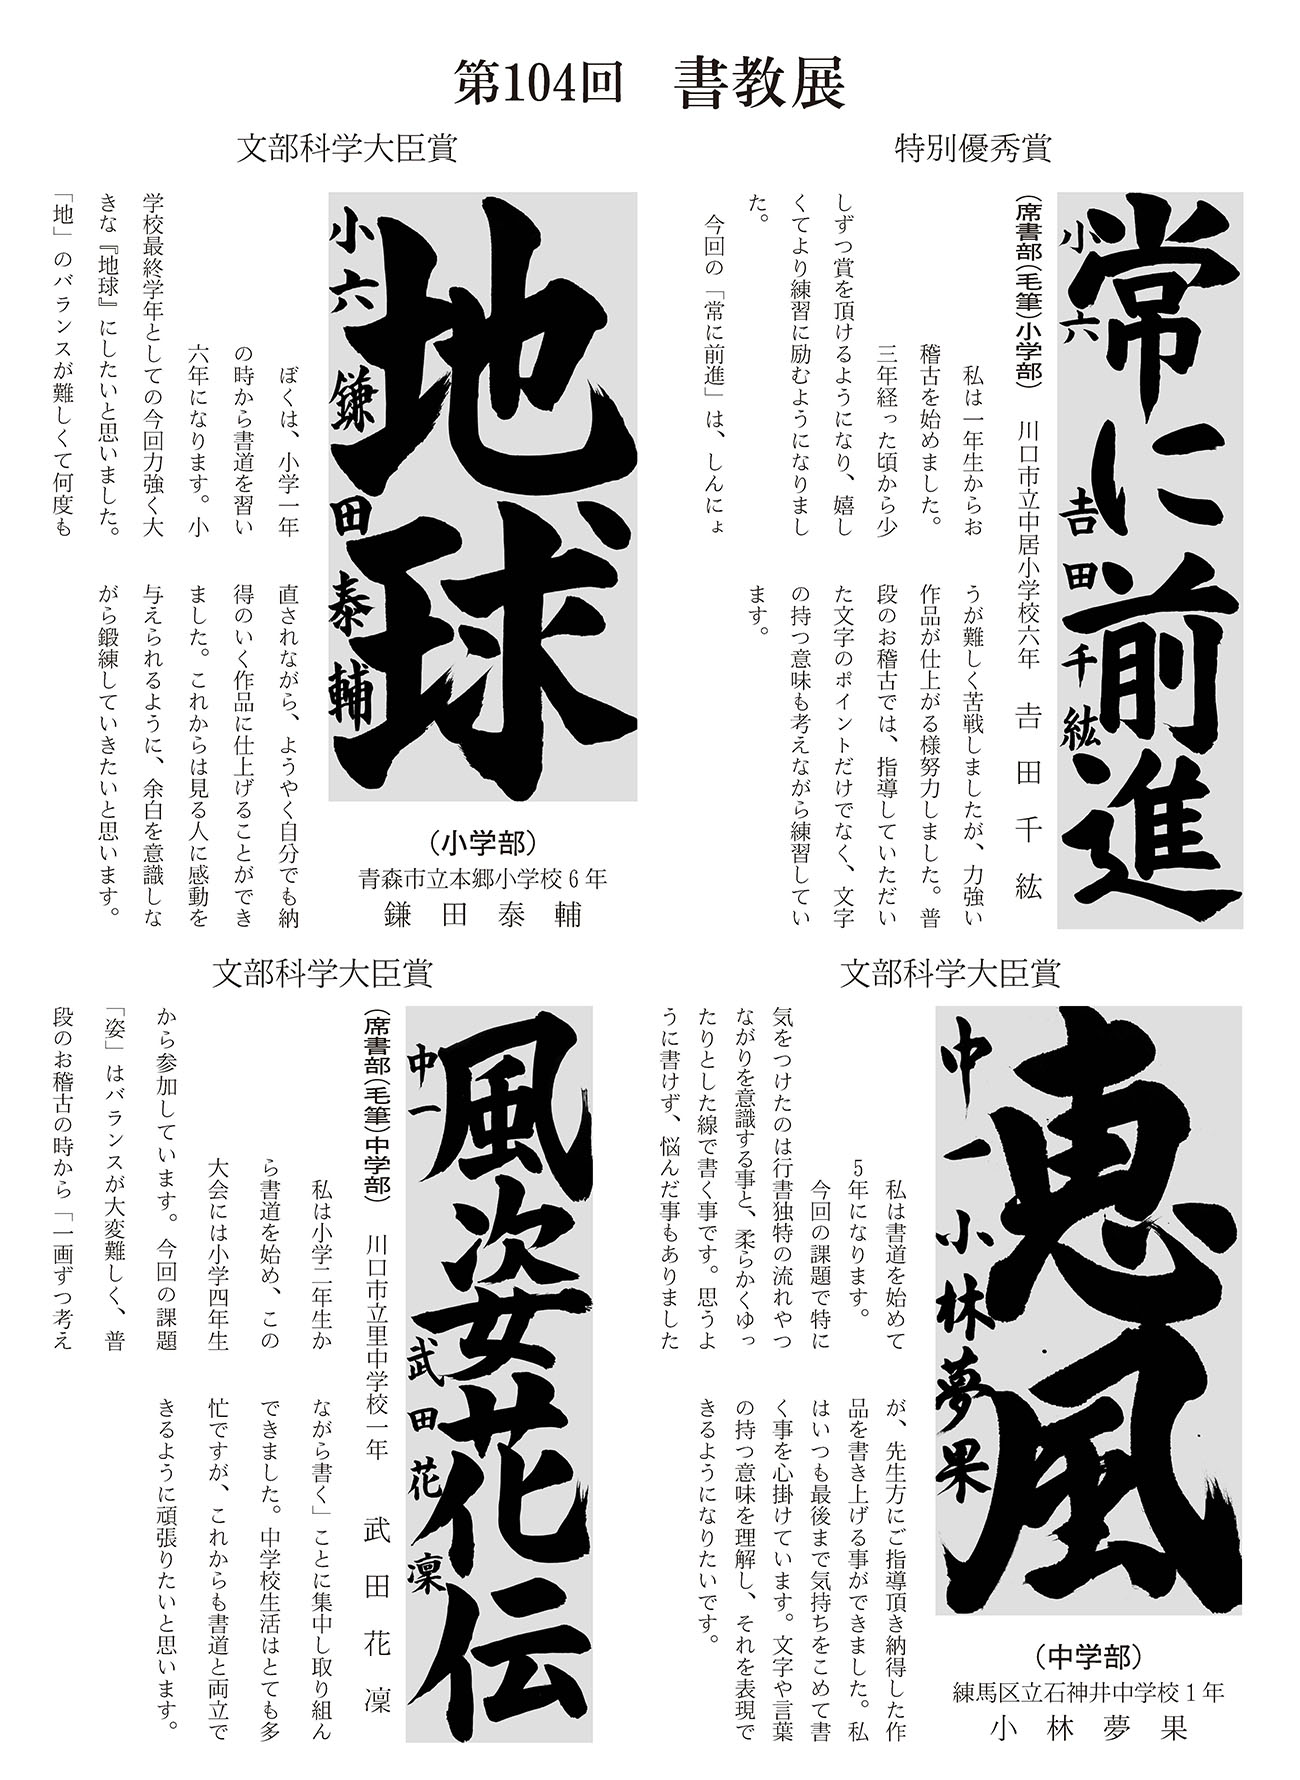 第104回　書教展
特別優秀賞
常に前進
小六　吉田千紘
（席書部（毛筆）小学部）　川口市立中居小学校六年　吉田千紘
私は一年生からお
稽古を始めました。
三年経った頃から少
しずつ賞を頂けるようになり、嬉し
くてより練習に励むようになりまし
た。
今回の「常に前進」は、しんにょ
うが難しく苦戦しましたが、力強い
作品が仕上がる様努力しました。普
段のお稽古では、指導していただい
た文字のポイントだけでなく、文字
の持つ意味も考えながら練習してい
ます。
文部科学大臣賞
地球
小六　鎌田泰輔
（小学部）
青森市立本郷小学校6年
鎌田泰輔
ぼくは、小学一年
の時から書道を習い
六年になります。小
学校最終学年としての今回力強く大
きな『地球』にしたいと思いました。
「地」のバランスが難しくて何度も
直されながら、ようやく自分でも納
得のいく作品に仕上げることができ
ました。これからは見る人に感動を
与えられるように、余白を意識しな
がら鍛練していきたいと思います。
文部科学大臣賞
恵風
中一　小林夢果
（中学部）
練馬区立石神井中学校1年
小林夢果
私は書道を始めて
5年になります。
今回の課題で特に
気をつけたのは行書独特の流れやつ
ながりを意識する事と、柔らかくゆっ
たりとした線で書く事です。思うよ
うに書けず、悩んだ事もありました
が、先生方にご指導頂き納得した作
品を書き上げる事ができました。私
はいつも最後まで気持ちをこめて書
く事を心掛けています。文字や言葉
の持つ意味を理解し、それを表現で
きるようになりたいです。
文部科学大臣賞
風姿花伝
中一　武田花凜
（席書部（毛筆）中学部）　川口市立里中学校一年　武田花凜
私は小学二年生か
ら書道を始め、この
大会には小学四年生
から参加しています。今回の課題
「姿」はバランスが大変難しく、普
段のお稽古の時から「一画ずつ考え
ながら書く」ことに集中し取り組ん
できました。中学校生活はとても多
忙ですが、これからも書道と両立で
きるように頑張りたいと思います。